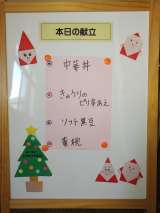 本日の献立
中華丼
きゅうりのピリ辛あえ
ソフト黒豆
黄桃